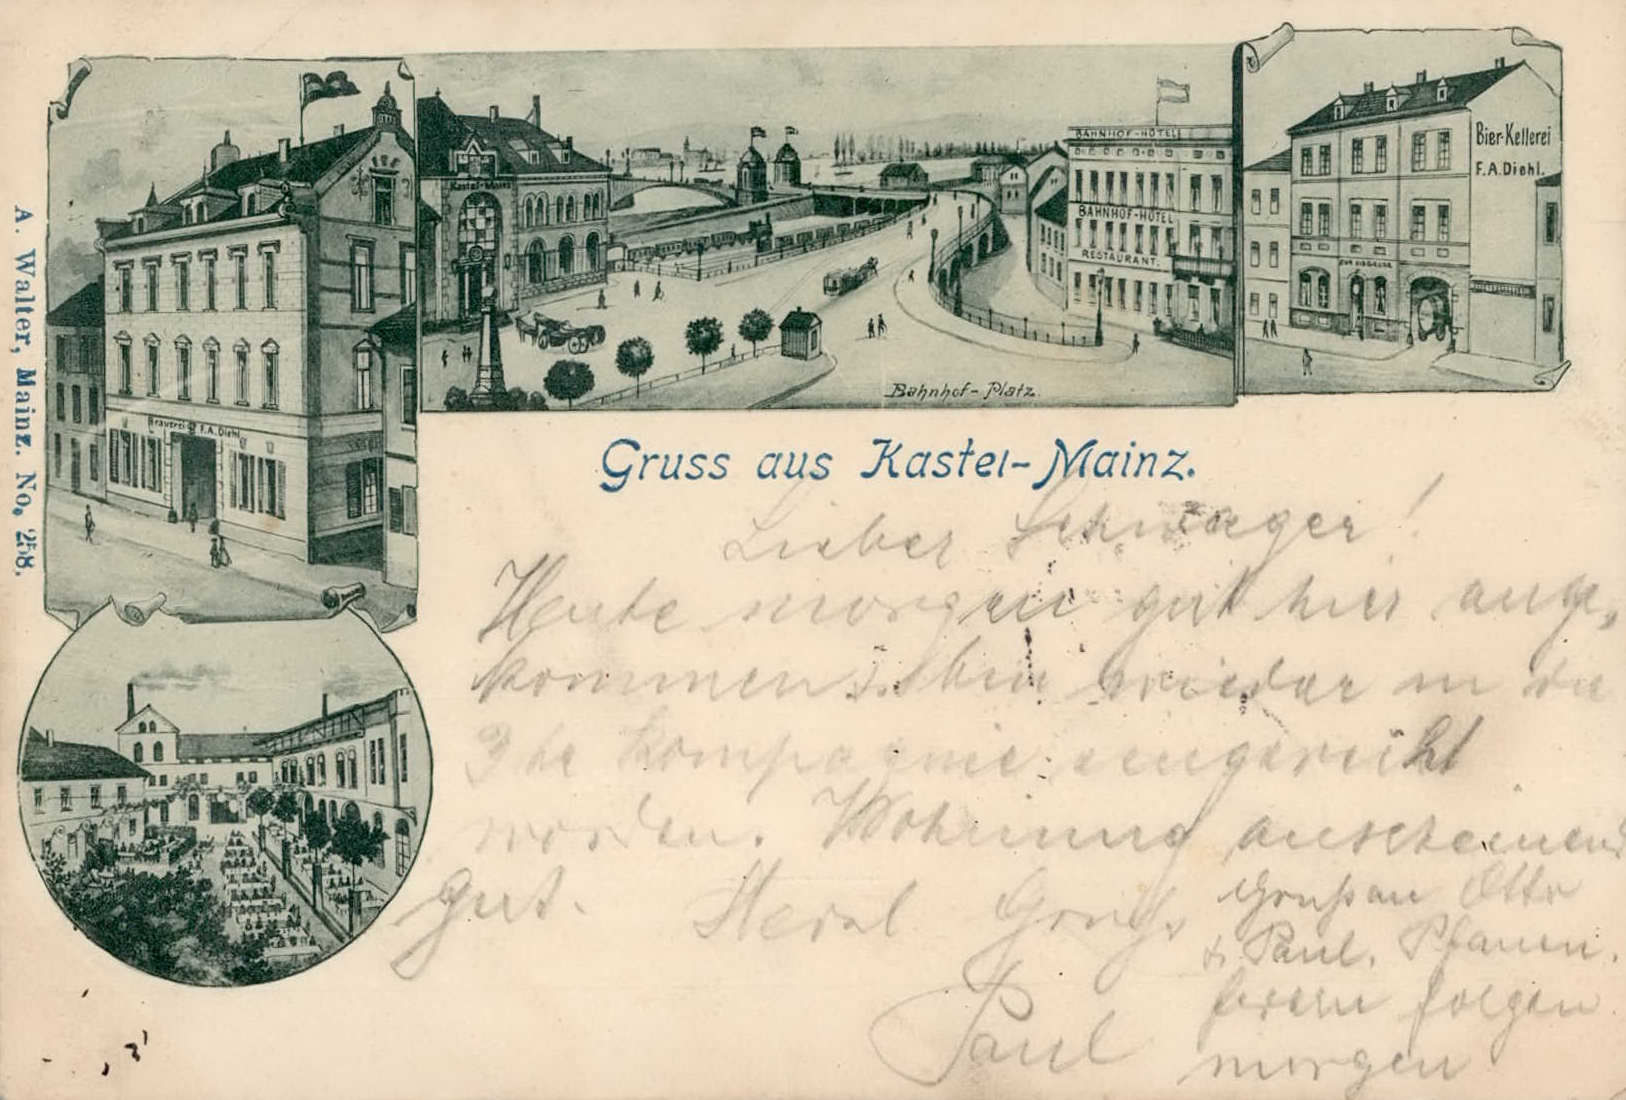 A. Walter, Mainz. No. 258.
Brauerei F.A. Diehl
Kastel-Mainz
BAHNHOF-HÔTEL
BAHNHOF-HÔTEL
RESTAURANT.
Bahnhof-Platz.
Bier-Kellerei
F.A. Diehl.
Gruss aus Kastel-Mainz.
Lieber Schwager!
Heute morgen gut hier ange-
kommen u. bin wieder in die
3te Kompagnie eingereiht
worden. Wohnung anscheinend
gut. Herzl. Gruß
Paul
Gruß an Otto
u. Paul.
folgen
morgen